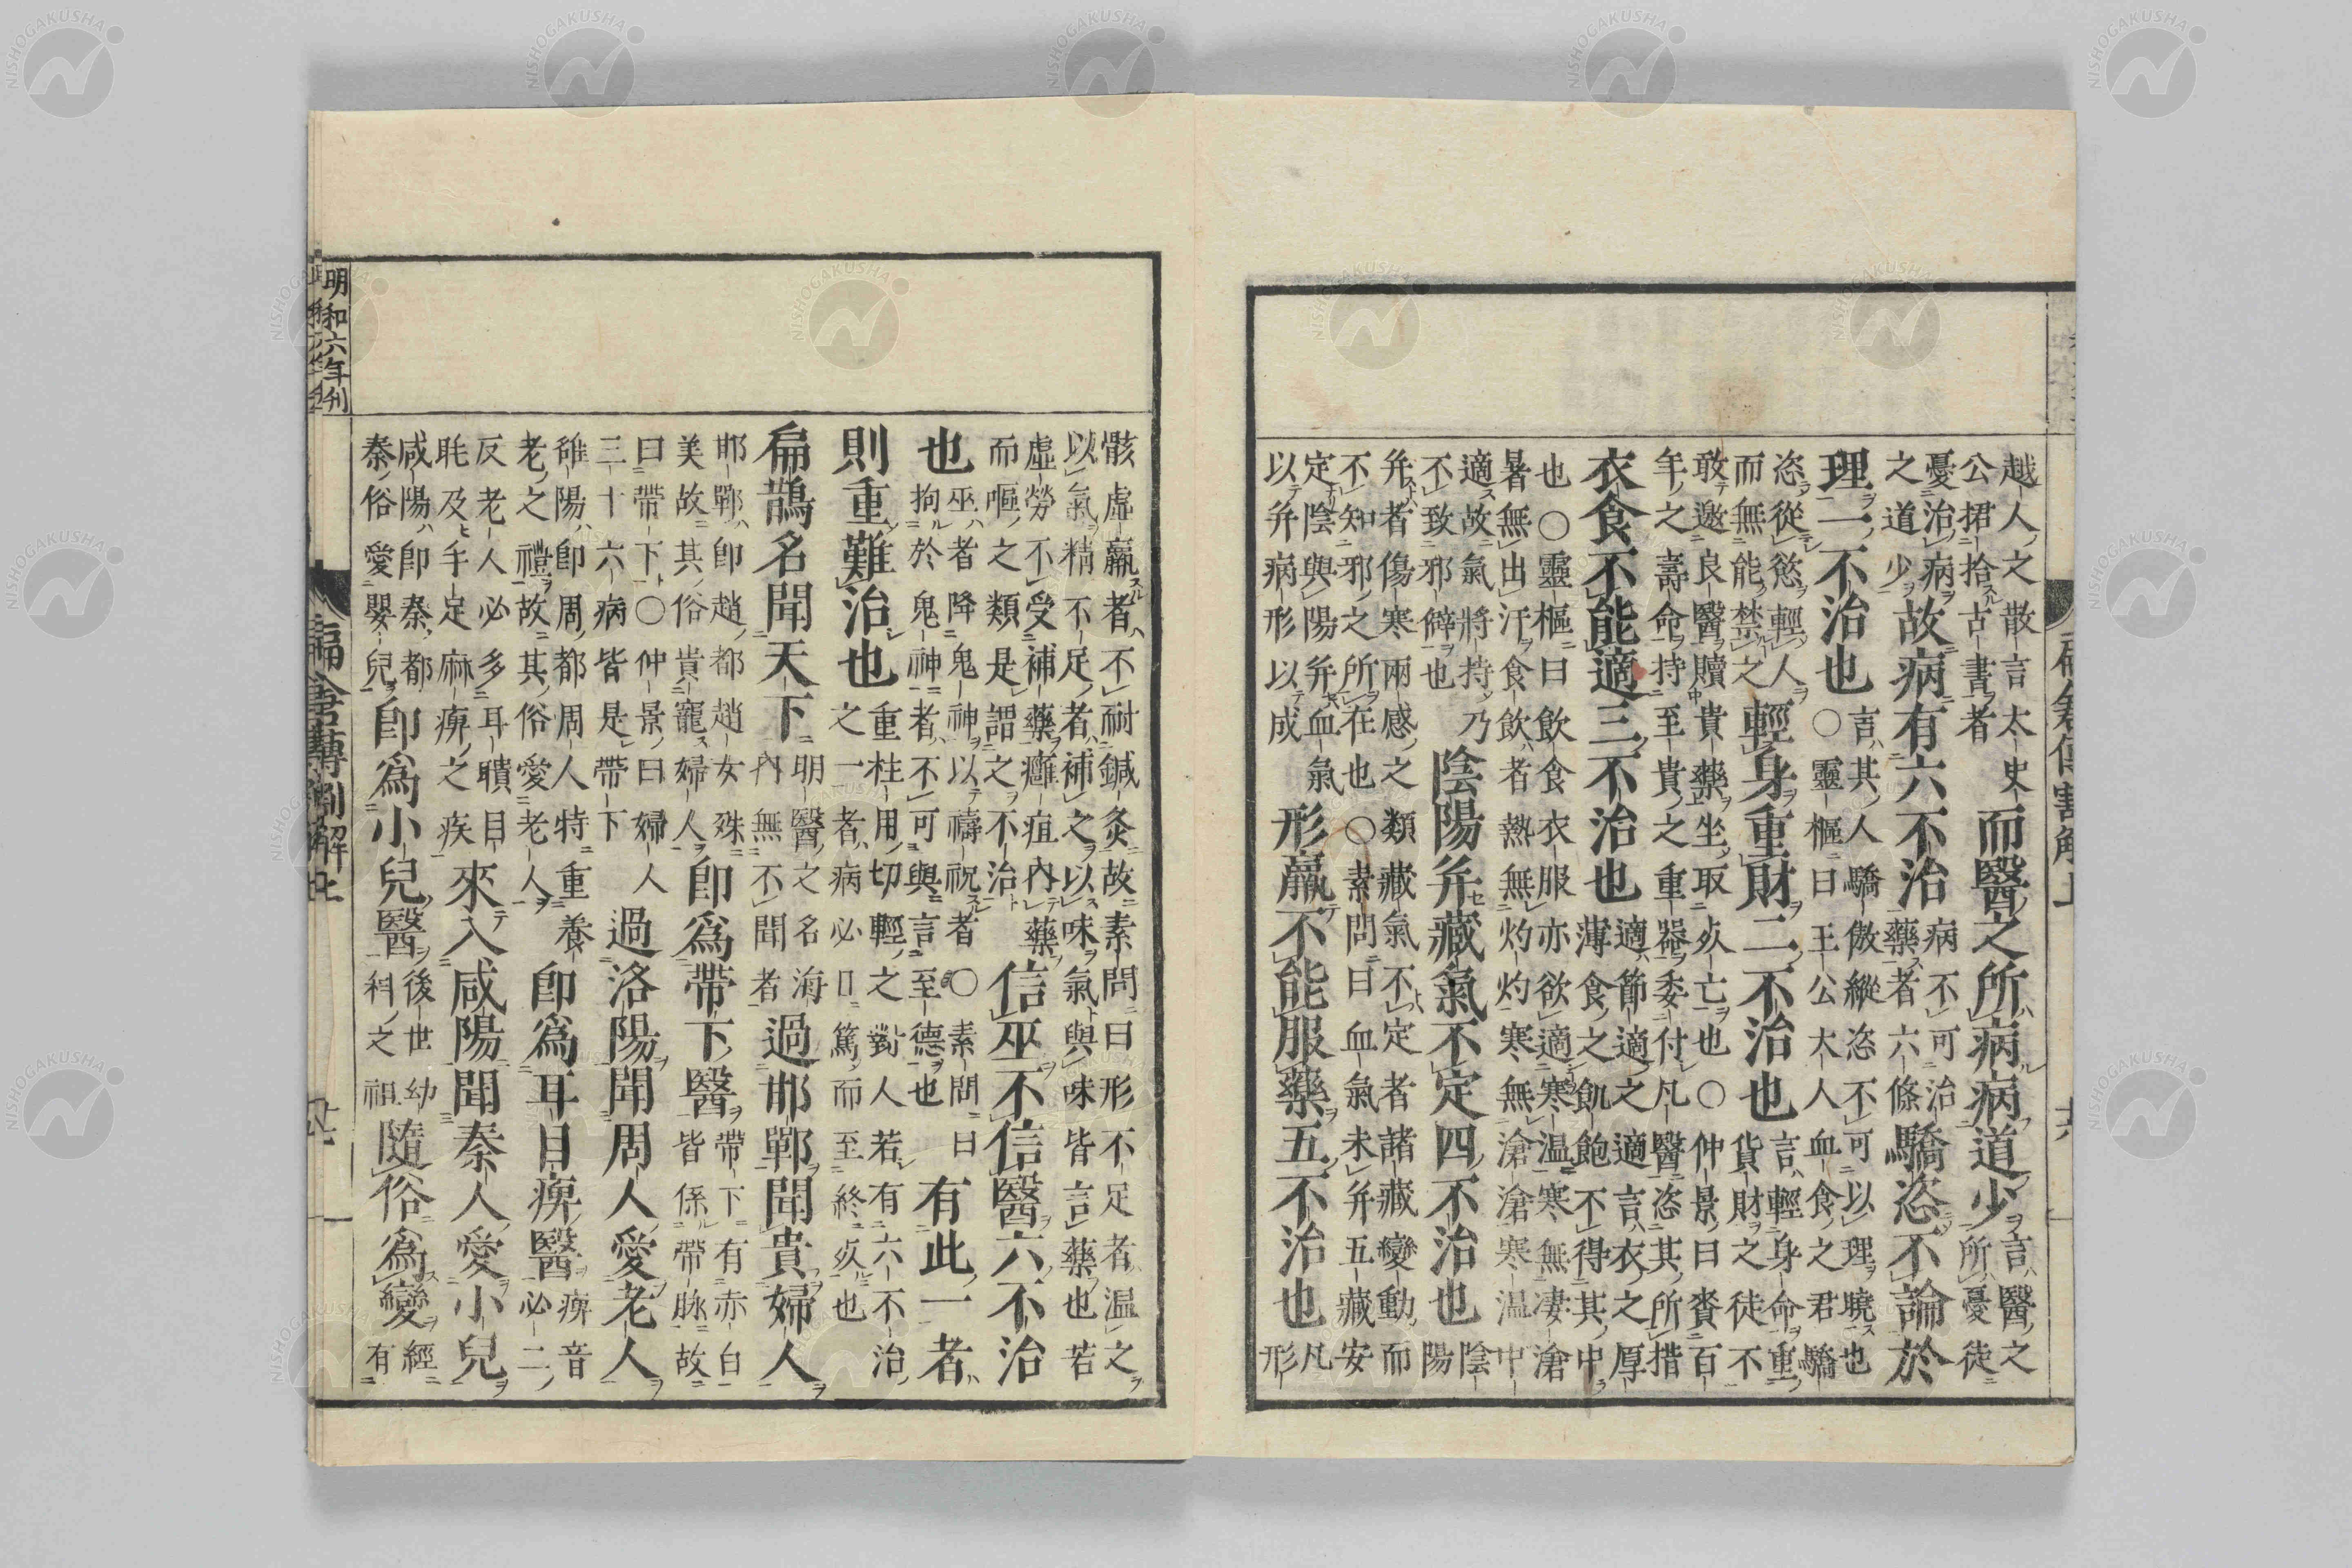 越人之散言太史公捃拾古書者而醫之所病病道少言醫之所憂徒
憂治病之道少故病有六不治病不可治藥者六條驕恣不論於
理一不治也言其人驕傲縱恣不可以理曉也○靈樞曰王公大人血食之君驕
恣從慾輕人而無能禁之輕身重財二不治也言輕身命重貨財之徒不
敢邀良醫贖貴藥坐取死亡也○仲景曰賚百年之壽命持至貴之重器委付凡醫恣其所措
衣食不能適三不治也適節適之適言衣之厚薄食之飢飽不得其中
也○靈樞曰飲食衣服亦欲適寒温寒無凄滄暑無出汗食飲者熱無灼灼寒無滄滄寒温中
適故氣將持乃不致邪僻也陰陽并藏氣不定四不治也陰陽
并者傷寒兩感之類藏氣不定者諸藏變動而不知邪之所在也○素問曰血氣未并五藏安
定陰與陽并血氣以并病形以成形羸不能服藥五不治也凡形
骸虛羸者不耐鍼灸故素問曰形不足者温之以氣精不足者補之以味氣與味皆言藥也若
虛勞不受補藥癰疽内藥而嘔之類是謂之不治信巫不信醫六不治
也巫者降鬼神以禱祝者○素問曰拘於鬼神者不可與言至德也有此一者
則重難治也重柱用切輕之對人若有六不治之一者病必日篤而至終死也
扁鵲名聞天下明醫之名海内無不聞者過邯鄲聞貴婦人
邯鄲即趙都趙女殊美故其俗貴寵婦人即為帶下醫帶下有赤白皆係帶脉故
曰帶下○仲景曰婦人三十六病皆是帶下過洛陽聞周人愛老人
雒陽即周都周人特重養老之禮故其俗愛老人即為耳目痹醫痹音必二
反老人必多耳聵目眊及手足麻痹之疾來入咸陽聞秦人愛小兒
咸陽即秦都秦俗愛嬰兒即為小兒醫後世幼科之祖隨俗為變經有
明和六年刊
NISHOGAKUSHA